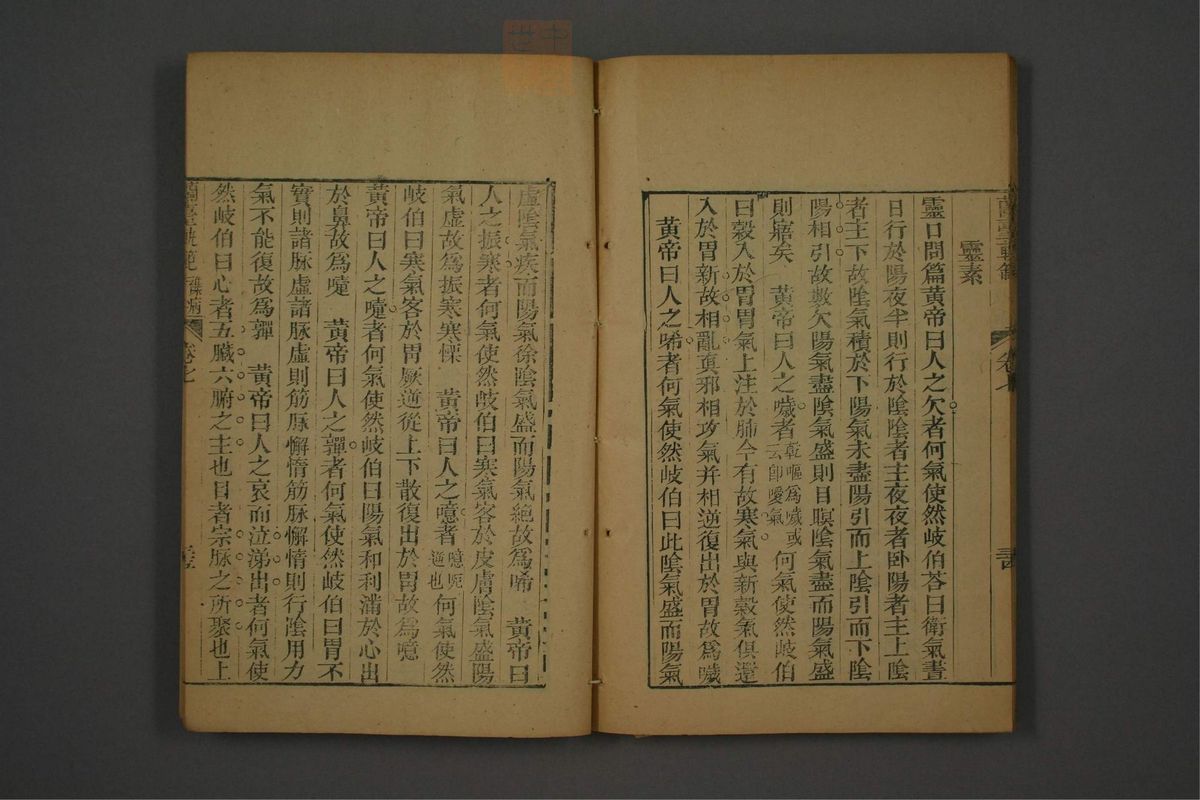 靈素
靈口問篇黃帝曰人之欠者何氣使然岐伯荅曰衛氣晝
日行於陽夜半則行於陰陰者主夜夜者卧陽者主上陰
者主下故陰氣積於下陽氣未盡陽引而上陰引而下陰
陽相引故數欠陽氣盡陰氣盛則目瞑陰氣盡而陽氣盛
則寤矣　黃帝曰人之噦者乾嘔為噦或云即噯氣何氣使然岐伯
曰穀入於胃胃氣上注於肺今有故寒氣與新穀氣俱還
入於胃新故相亂真邪相攻氣并相逆復出於胃故為噦
黃帝曰人之唏者何氣使然岐伯曰此陰氣盛而陽氣
卷七
虛陰氣疾而陽氣徐陰氣盛而陽氣絕故為唏　黃帝曰
人之振寒者何氣使然岐伯曰寒氣客於皮膚陰氣盛陽
氣虛故為振寒寒慄　黃帝曰人之噫者噫呃逆也何氣使然
岐伯曰寒氣客於胃厥逆從上下散復出於胃故為噫
黃帝曰人之嚏者何氣使然岐伯曰陽氣和利滿於心出
於鼻故為嚏　黃帝曰人之嚲者何氣使然岐伯曰胃不
實則諸脉虛諸脉虛則筋脉懈惰筋脉懈惰則行陰用力
氣不能復故為嚲　黃帝曰人之哀而泣涕出者何氣使
然岐伯曰心者五臟六腑之主也目者宗脉之所聚也上
蘭臺軌範
卷七